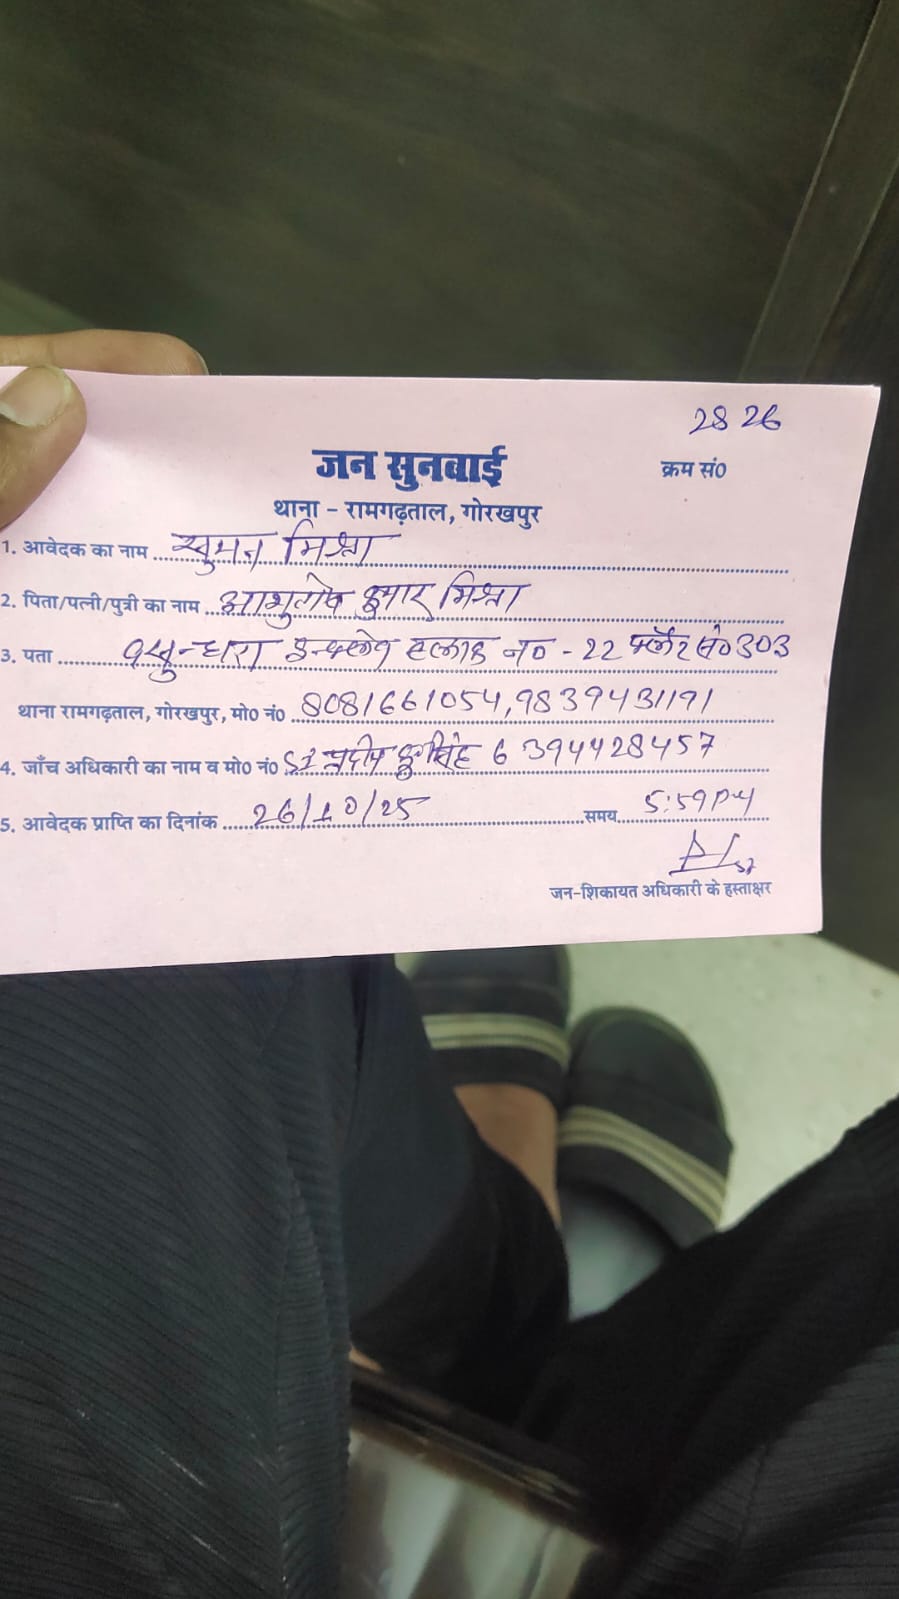 2826
जन सुनवाई
क्रम सं0
थाना - रामगढ़ताल, गोरखपुर
1. आवेदक का नाम ... सुमन मिश्रा
2. पिता/पत्नी/पुत्री का नाम ... आशुतोष कुमार मिश्रा
3. पता ... वसुन्धरा इन्क्लेव ब्लाक न0 - 22 फ्लैट सं0 303
थाना रामगढ़ताल, गोरखपुर, मो0 नं0 8081661054, 9839431191
4. जाँच अधिकारी का नाम व मो0 नं0 SI प्रदीप सिंह 6394428457
5. आवेदक प्राप्ति का दिनांक ... 26/10/25 ... समय 5:59 PM
जन-शिकायत अधिकारी के हस्ताक्षर